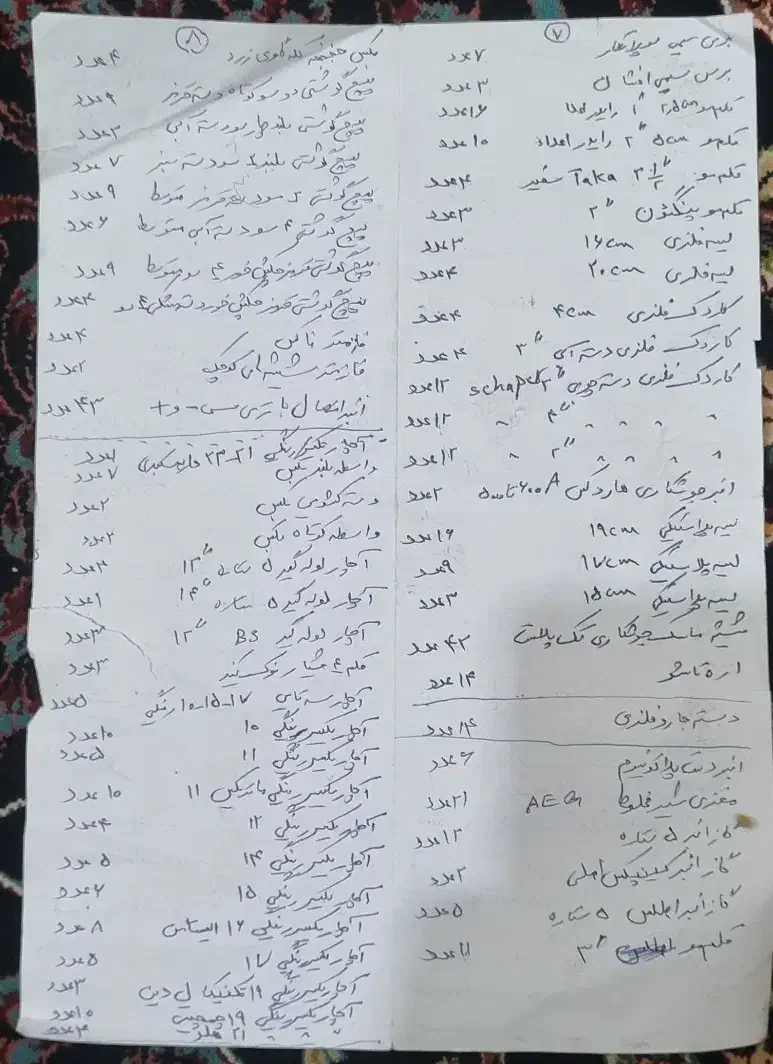 ۷
برس سیمی ۷ عدد
برس سیمی افشان ۳ عدد
قلم مو ۲٫۵cm ۱" رایدر امداد ۱۶ عدد
قلم مو ۵cm ۲" رایدر امداد ۱۰ عدد
قلم مو ۲ ۱/۲" Taka سفید ۴ عدد
قلم مو پنگئون ۲" ۳ عدد
لیسه فلزی ۱۶cm ۳ عدد
لیسه فلزی ۲۰cm ۴ عدد
کاردک فلزی ۴cm ۴ عدد
کاردک فلزی دسته آبی ۳" ۴ عدد
کاردک فلزی دسته چوبی ۳" schapek ۱۲ عدد
" " " ۴" " ۱۲ عدد
" " " ۲" " ۱۲ عدد
انبر جوشکاری هاردکس ۶۰۰A تا ۵۰۰ ۲ عدد
لیسه پلاستیکی ۱۹cm ۱۶ عدد
لیسه پلاستیکی ۱۷cm ۹ عدد
لیسه پلاستیکی ۱۵cm ۳ عدد
شیشه ماسک جوشکاری تک پلاست ۴۲ عدد
اره تاشو ۱۴ عدد
دسته جارو فلزی ۱۴ عدد
انبردست پلاکونیوم ۶ عدد
مغزی شیر مخلوط AEG ۲۱ عدد
گازانبر ۵ ستاره ۱۲ عدد
گازانبر کنیپکس اصلی ۲ عدد
گازانبر اطلس ۵ ستاره ۵ عدد
قلم مو ۳" ۱۱ عدد
۸
کله گاوی زرد ۴ عدد
پیچ گوشتی دوسو کوتاه دسته قرمز ۹ عدد
پیچ گوشتی بلند چهارسو دسته آبی ۳ عدد
پیچ گوشتی بلند ۴سو دسته سبز ۷ عدد
پیچ گوشتی ۲سو دسته قرمز متوسط ۹ عدد
پیچ گوشتی ۴سو دسته آبی متوسط ۶ عدد
پیچ گوشتی قرمز چکش خور ۴سو متوسط ۹ عدد
پیچ گوشتی قرمز چکش خور دسته مشکی ۴سو ۴ عدد
فازمتر تاکس ۴ عدد
فازمتر شیشه ای کوچک ۲ عدد
انبر اتصال باتری مسی - و + ۴۳ عدد
آچار یکسر رینگی ۲۱-۲۳-۲۴ عدد
واسطه بلند بکس ۷ عدد
دسته کشویی بکس ۲ عدد
واسطه کوتاه بکس ۲ عدد
آچار لوله گیر ۵ ستاره ۱۲" ۳ عدد
آچار لوله گیر ۵ ستاره ۱۴" ۱ عدد
آچار لوله گیر BS ۱۲" ۳ عدد
قلم ۴ شیار نوک کند ۳ عدد
آچار سه تایی ۱۷-۱۵-۱۰ رینگی ۵ عدد
آچار یکسر رینگی ۱۰ ۱۰ عدد
آچار یکسر رینگی ۱۱ ۵ عدد
آچار یکسر رینگی ۱۱ ۱۰ عدد
آچار یکسر رینگی ۱۲ ۴ عدد
آچار یکسر رینگی ۱۴ ۵ عدد
آچار یکسر رینگی ۱۵ ۶ عدد
آچار یکسر رینگی ۱۶ ۸ عدد
آچار یکسر رینگی ۱۷ ۵ عدد
آچار یکسر رینگی ۱۹ ۳ عدد
آچار یکسر رینگی ۱۹ ۱۰ عدد
" " " ۲۱ ۴ عدد